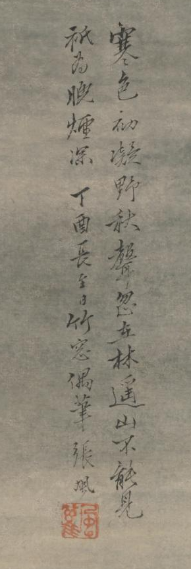 寒色初凝野秋聲忽在林遥山不能見
祗為晚煙深 丁酉長至日竹窓偶筆 張風